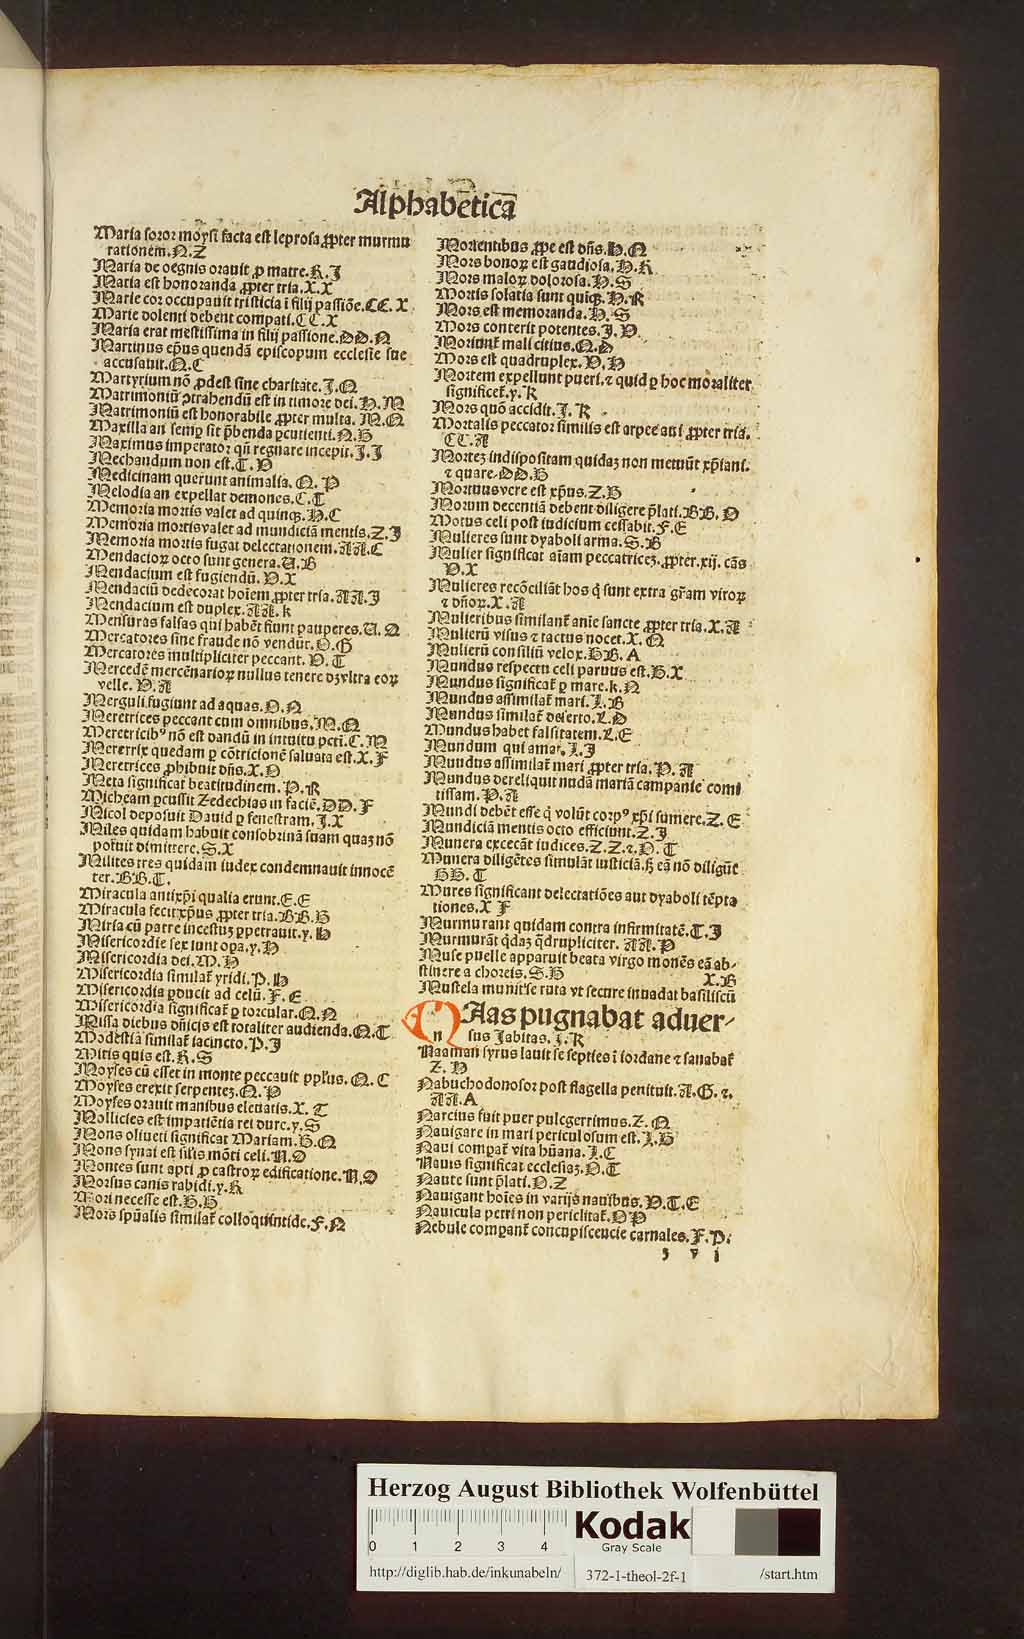 Alphabeticā
Maria soror moysi facta est leprosa ꝓpter murmu
rationem. N. Z
Maria de oegnis orauit ꝓ matre. R. J
Maria est honoranda ꝓpter tria. X. X
Marie cor occupauit tristicia ī filij passiōe. CC. X
Marie dolenti debent compati. CC. X
Maria erat mestissima in filij passione. DD. N
Martinus ep̄us quendā episcopum ecclesie sue
accusauit. Q. C
Martyrium nō ꝓdest sine charitate. J. Q
Matrimoniū ꝯtrahendū est in timore dei. H. M
Matrimoniū est honorabile ꝓpter multa. M. Q
Maxilla an semꝑ sit p̄benda ꝑcutienti. N. B
Maximus imperator qn̄ regnare incepit. J. J
Mechandum non est. T. V
Medicinam querunt animalia. Q. P
Melodia an expellat demones. C. T
Memoria mortis valet ad quinqꝫ. H. C
Memoria mortis valet ad mundiciā mentis. Z. J
Memoria mortis fugat delectationem. AA. C
Mendacioꝝ octo sunt genera. U. B
Mendacium est fugiendū. V. X
Mendaciū dedecorat hoīem ꝓpter tria. AA. J
Mendacium est duplex. AA. k
Mensuras falsas qui habēt fiunt pauperes. U. Q
Mercatores sine fraude nō vendūt. O. G
Mercatores multipliciter peccant. V. T
Mercedē mercēnarioꝝ nullus tenere dꝫ vltra eoꝝ
velle. V. A
Merguli fugiunt ad aquas. O. N
Meretrices peccant cum omnibus. M. Q
Meretricibꝰ nō est dandū in intuitu pcti. C. M
Meretrix quedam ꝑ cōtricionē saluata est. X. F
Meretrices ꝓhibuit dn̄s. X. O
Meta significat beatitudinem. P. R
Micheam ꝑcussit Zedechias in faciē. DD. F
Micol deposuit Dauid ꝑ fenestram. J. X
Miles quidam habuit consobrinā suam quaꝫ nō
potuit dimittere. S. X
Milites tres quidam iudex condemnauit innocē
ter. BB. T.
Miracula antixp̄i qualia erunt. E. E
Miracula fecit xp̄us ꝓpter tria. BB. H
Miria cū patre incestuꝫ ꝑpetrauit. y. H
Misericordie sex sunt oꝑa. y. H
Misericordia dei. M. H
Misericordia similat̄ yridi. P. H
Misericordia ꝑducit ad celū. F. E
Misericordia significat̄ ꝑ torcular. Q. N
Missa diebus dn̄icis est totaliter audienda. Q. T
Modestia similat̄ iacincto. P. J
Mitis quis est. R. S
Moyses cū esset in monte peccauit pplus. Q. C
Moyses erexit serpenteꝫ. Q. P
Moyses orauit manibus eleuatis. X. T
Mollicies est impatiētia rei dure. y. S
Mons oliueti significat Mariam. B. Q
Mons synai est sīlis mōti celi. N. O
Montes sunt apti ꝓ castroꝝ edificatione. N. O
Morsus canis rabidi. y. R
Mori necesse est. H. H
Mors spūalis similat̄ colloquintide. F. N
Morientibus ꝓpe est dn̄s. H. Q
Mors bonoꝝ est gaudiosa. H. R
Mors maloꝝ dolorosa. H. S
Mortis solatia sunt quiqꝫ. H. R
Mors est memoranda. H. S
Mors conterit potentes. J. V
Moriunt̄ mali citius. Q. D
Mors est quadruplex. V. H
Mortem expellunt pueri. ⁊ quid ꝑ hoc moraliter
significet̄. y. R
Mors quō accidit. J. R
Mortalis peccator similis est arpee aui ꝓpter tria.
CC. A
Morteꝫ indispositam quidaꝫ non metuūt xp̄iani.
⁊ quare. DD. B
Mortuus vere est xp̄us. Z. B
Morum decentiā debent diligere p̄lati. BB. O
Motus celi post iudicium cessabit. F. E
Mulieres sunt dyaboli arma. S. B
Mulier significat aīam peccatriceꝫ. ꝓpter. xij. cās
V. X
Mulieres recōciliāt hos q̇ sunt extra gr̄am viroꝝ
⁊ dn̄oꝝ. X. A
Mulieribus similant̄ anīe sancte ꝓpter tria. X. A
Mulierū visus ⁊ tactus nocet. X. Q
Mulierū consiliū velox. BB. A
Mundus respectu celi paruus est. B. X
Mundus significat̄ ꝑ mare. k. N
Mundus assimilat̄ mari. L. B
Mundus similat̄ deserto. L. D
Mundus habet falsitatem. L. E
Mundum qui amat. J. J
Mundus assimilat̄ mari ꝓpter tria. P. A
Mundus dereliquit nudā mariā campanie comi
tissam. P. A
Mundi debēt esse q̇ volūt corpꝰ xp̄i sumere. Z. E
Mundiciā mentis octo efficiunt. Z. J
Munera excecāt iudices. Z. Z. ⁊. O. T
Munera diligētes simulāt iusticiā. sꝫ eā nō diligūt
BB. T
Mures significant delectatiōes aut dyaboli tēpta
tiones. X F
Murmurant quidam contra infirmitatē. T. J
Murmurāt q̇daꝫ q̇drupliciter. AA. P
Muse puelle apparuit beata virgo monēs eā ab-
stinere a choreis. S. H X. B
Mustela munit se ruta vt secure inuadat basiliscū
NAas pugnabat aduer-
n sus Jabitas. i. R
Naaman syrus lauit se septies ī iordane ⁊ sanabat̄
Z. H
Nabuchodonosor post flagella penituit. A. G. ⁊.
AA. A
Narcius fuit puer pulcgerrimus. Z. Q
Nauigare in mari periculosum est. J. H
Naui compat̄ vita hūana. J. C
Nauis significat ecclesiaꝫ. O. T
Naute sunt p̄lati. O. Z
Nauigant hoīes in varijs nauibus. V. T. E
Nauicula petri non periclitat̄. O P
Nebule comparant̄ concupiscencie carnales. F. P.
3 v j
Herzog August Bibliothek Wolfenbüttel
0 1 2 3 4
Kodak
Gray Scale
http://diglib.hab.de/inkunabeln/
372-1-theol-2f-1
/start.htm